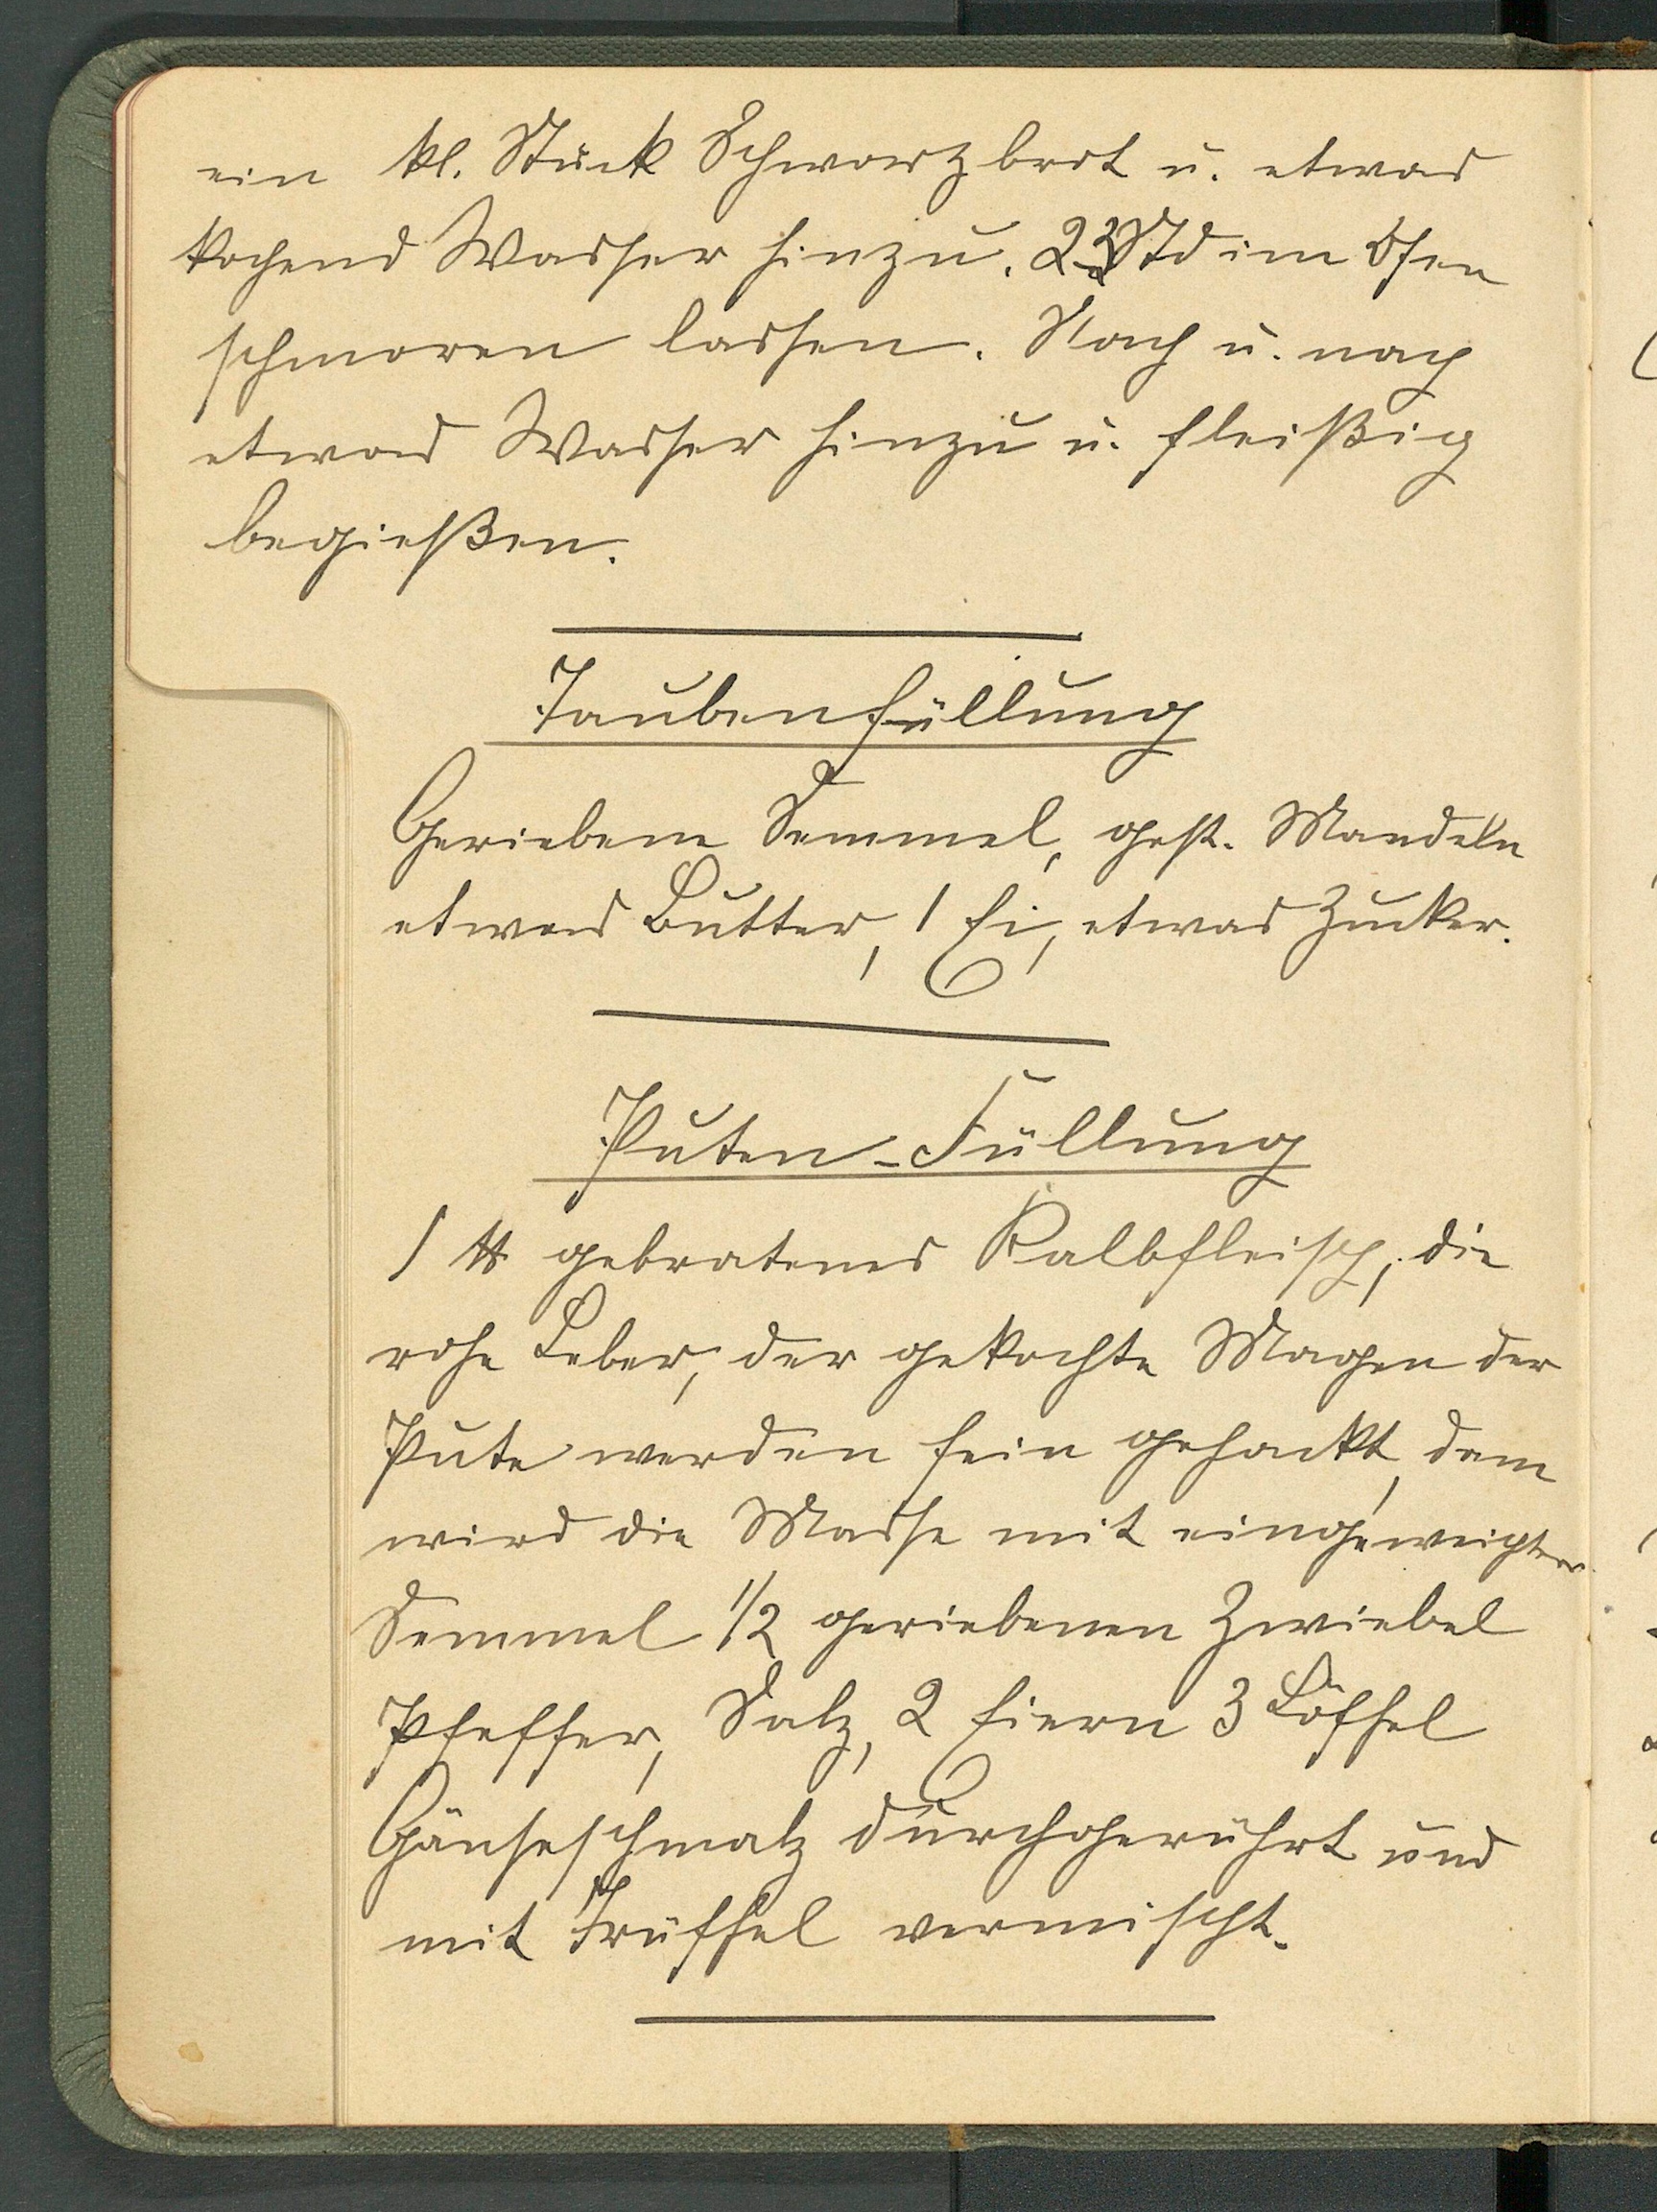 ein kl. Stück Schwarzbrot u. etwas
kochend Wasser hinzu. 2 Std im Ofen
schmoren lassen. Nach u. nach
etwas Wasser hinzu u. fleißig
begießen.
Taubenfüllung
Geriebene Semmel, gest. Mandeln
etwas Butter, 1 Ei, etwas Zucker.
Puten-Füllung
1 ℔ gebratenes Kalbfleisch, die
rohe Leber, der gekochte Magen der
Pute werden fein gehackt, dann
wird die Masse mit eingeweichter
Semmel 1/2 geriebenen Zwiebel
Pfeffer, Salz, 2 Eiern 3 Löffel
Gänseschmalz durchgerührt und
mit Trüffel vermischt.